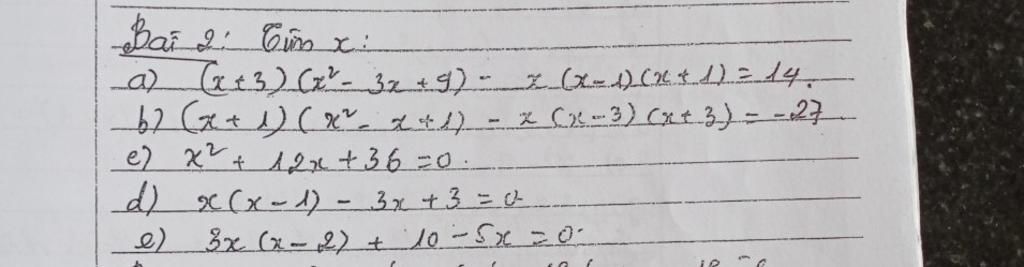 Bài 2: Tìm x:
a) (x+3)(x² - 3x + 9) - x(x-1)(x+1) = 14.
b) (x+1)(x² - x + 1) - x(x-3)(x+3) = -27
c) x² + 12x + 36 = 0.
d) x(x-1) - 3x + 3 = 0
e) 3x(x-2) + 10 - 5x = 0.